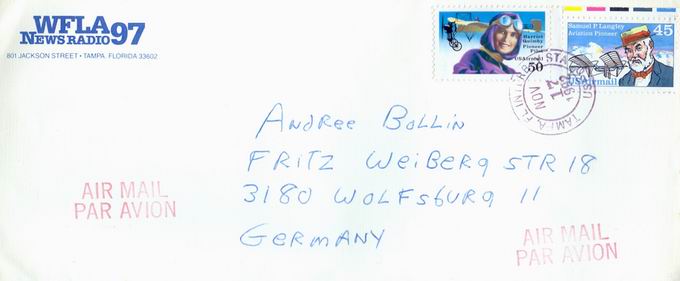 WFLA
NEWSRADIO 97
801 JACKSON STREET • TAMPA, FLORIDA 33602
Harriet
Quimby
Pioneer
Pilot
USAirmail
50
Samuel P. Langley
Aviation Pioneer
45
USAirmail
TAMPA, FL
NOV
17
1993
ANDREE BOLLIN
FRITZ WEIBERG STR 18
3180 WOLFSBURG 11
GERMANY
AIR MAIL
PAR AVION
AIR MAIL
PAR AVION